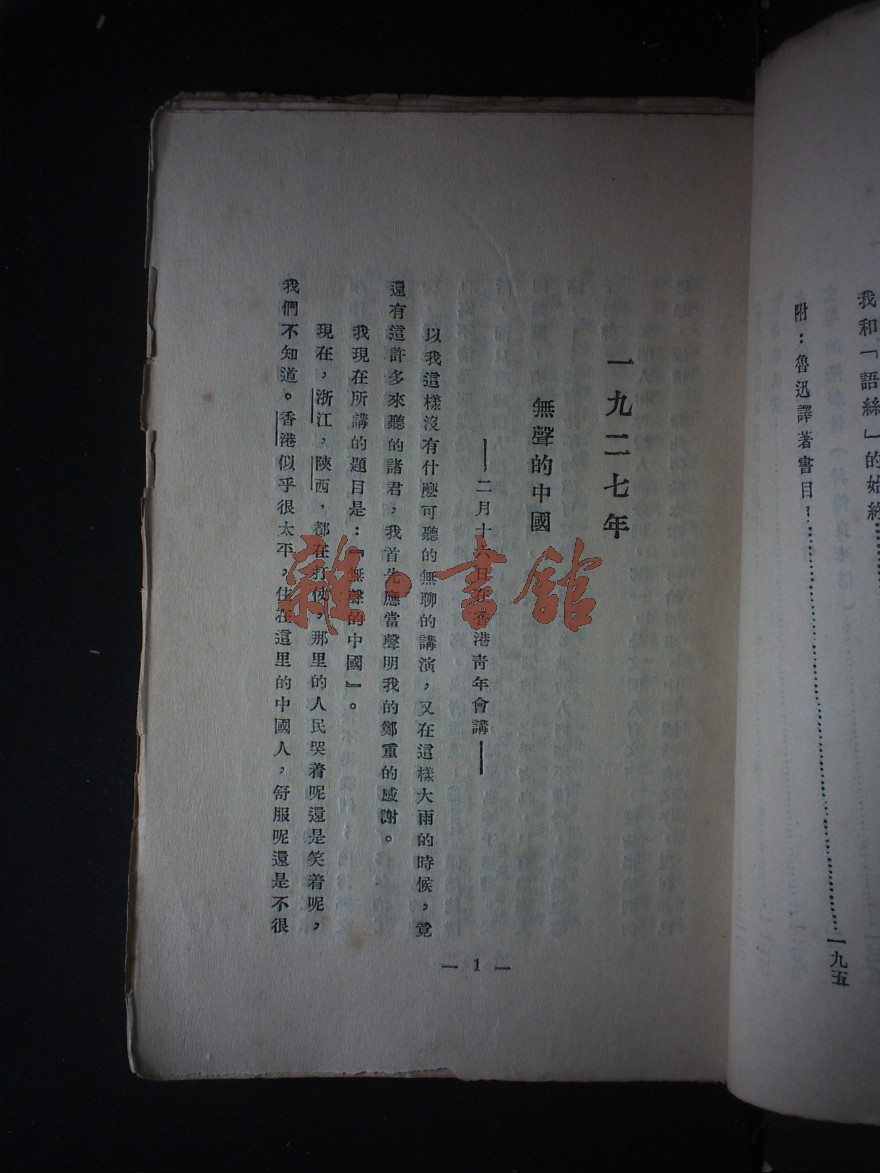 我和「語絲」的始終
附：魯迅譯著書目！………一九五
一九二七年
無聲的中國
——二月十六日在香港靑年會講——
以我這樣沒有什麽可聽的無聊的講演，又在這樣大雨的時候，竟
還有這許多來聽的諸君，我首先應當聲明我的鄭重的感謝。
我現在所講的題目是：『無聲的中國』。
現在，浙江，陝西，都在打仗，那里的人民哭着呢還是笑着呢，
我們不知道。香港似乎很太平，住在這里的中國人，舒服呢還是不很
— 1 —
雜·書館